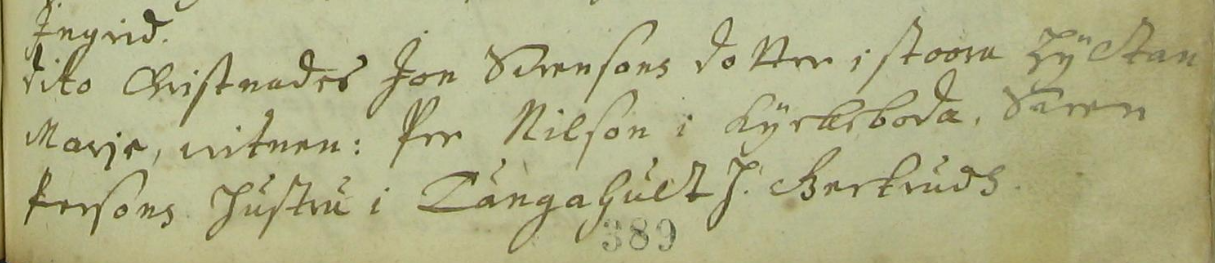 Ingrid.
dito Christnades Jon Sörensons dotter i stoora Hÿltan
Marje, witnen: Per Nilson i Kÿrkeboda, Sören
Persons Hustru i Långahult H. Gertruds.
389